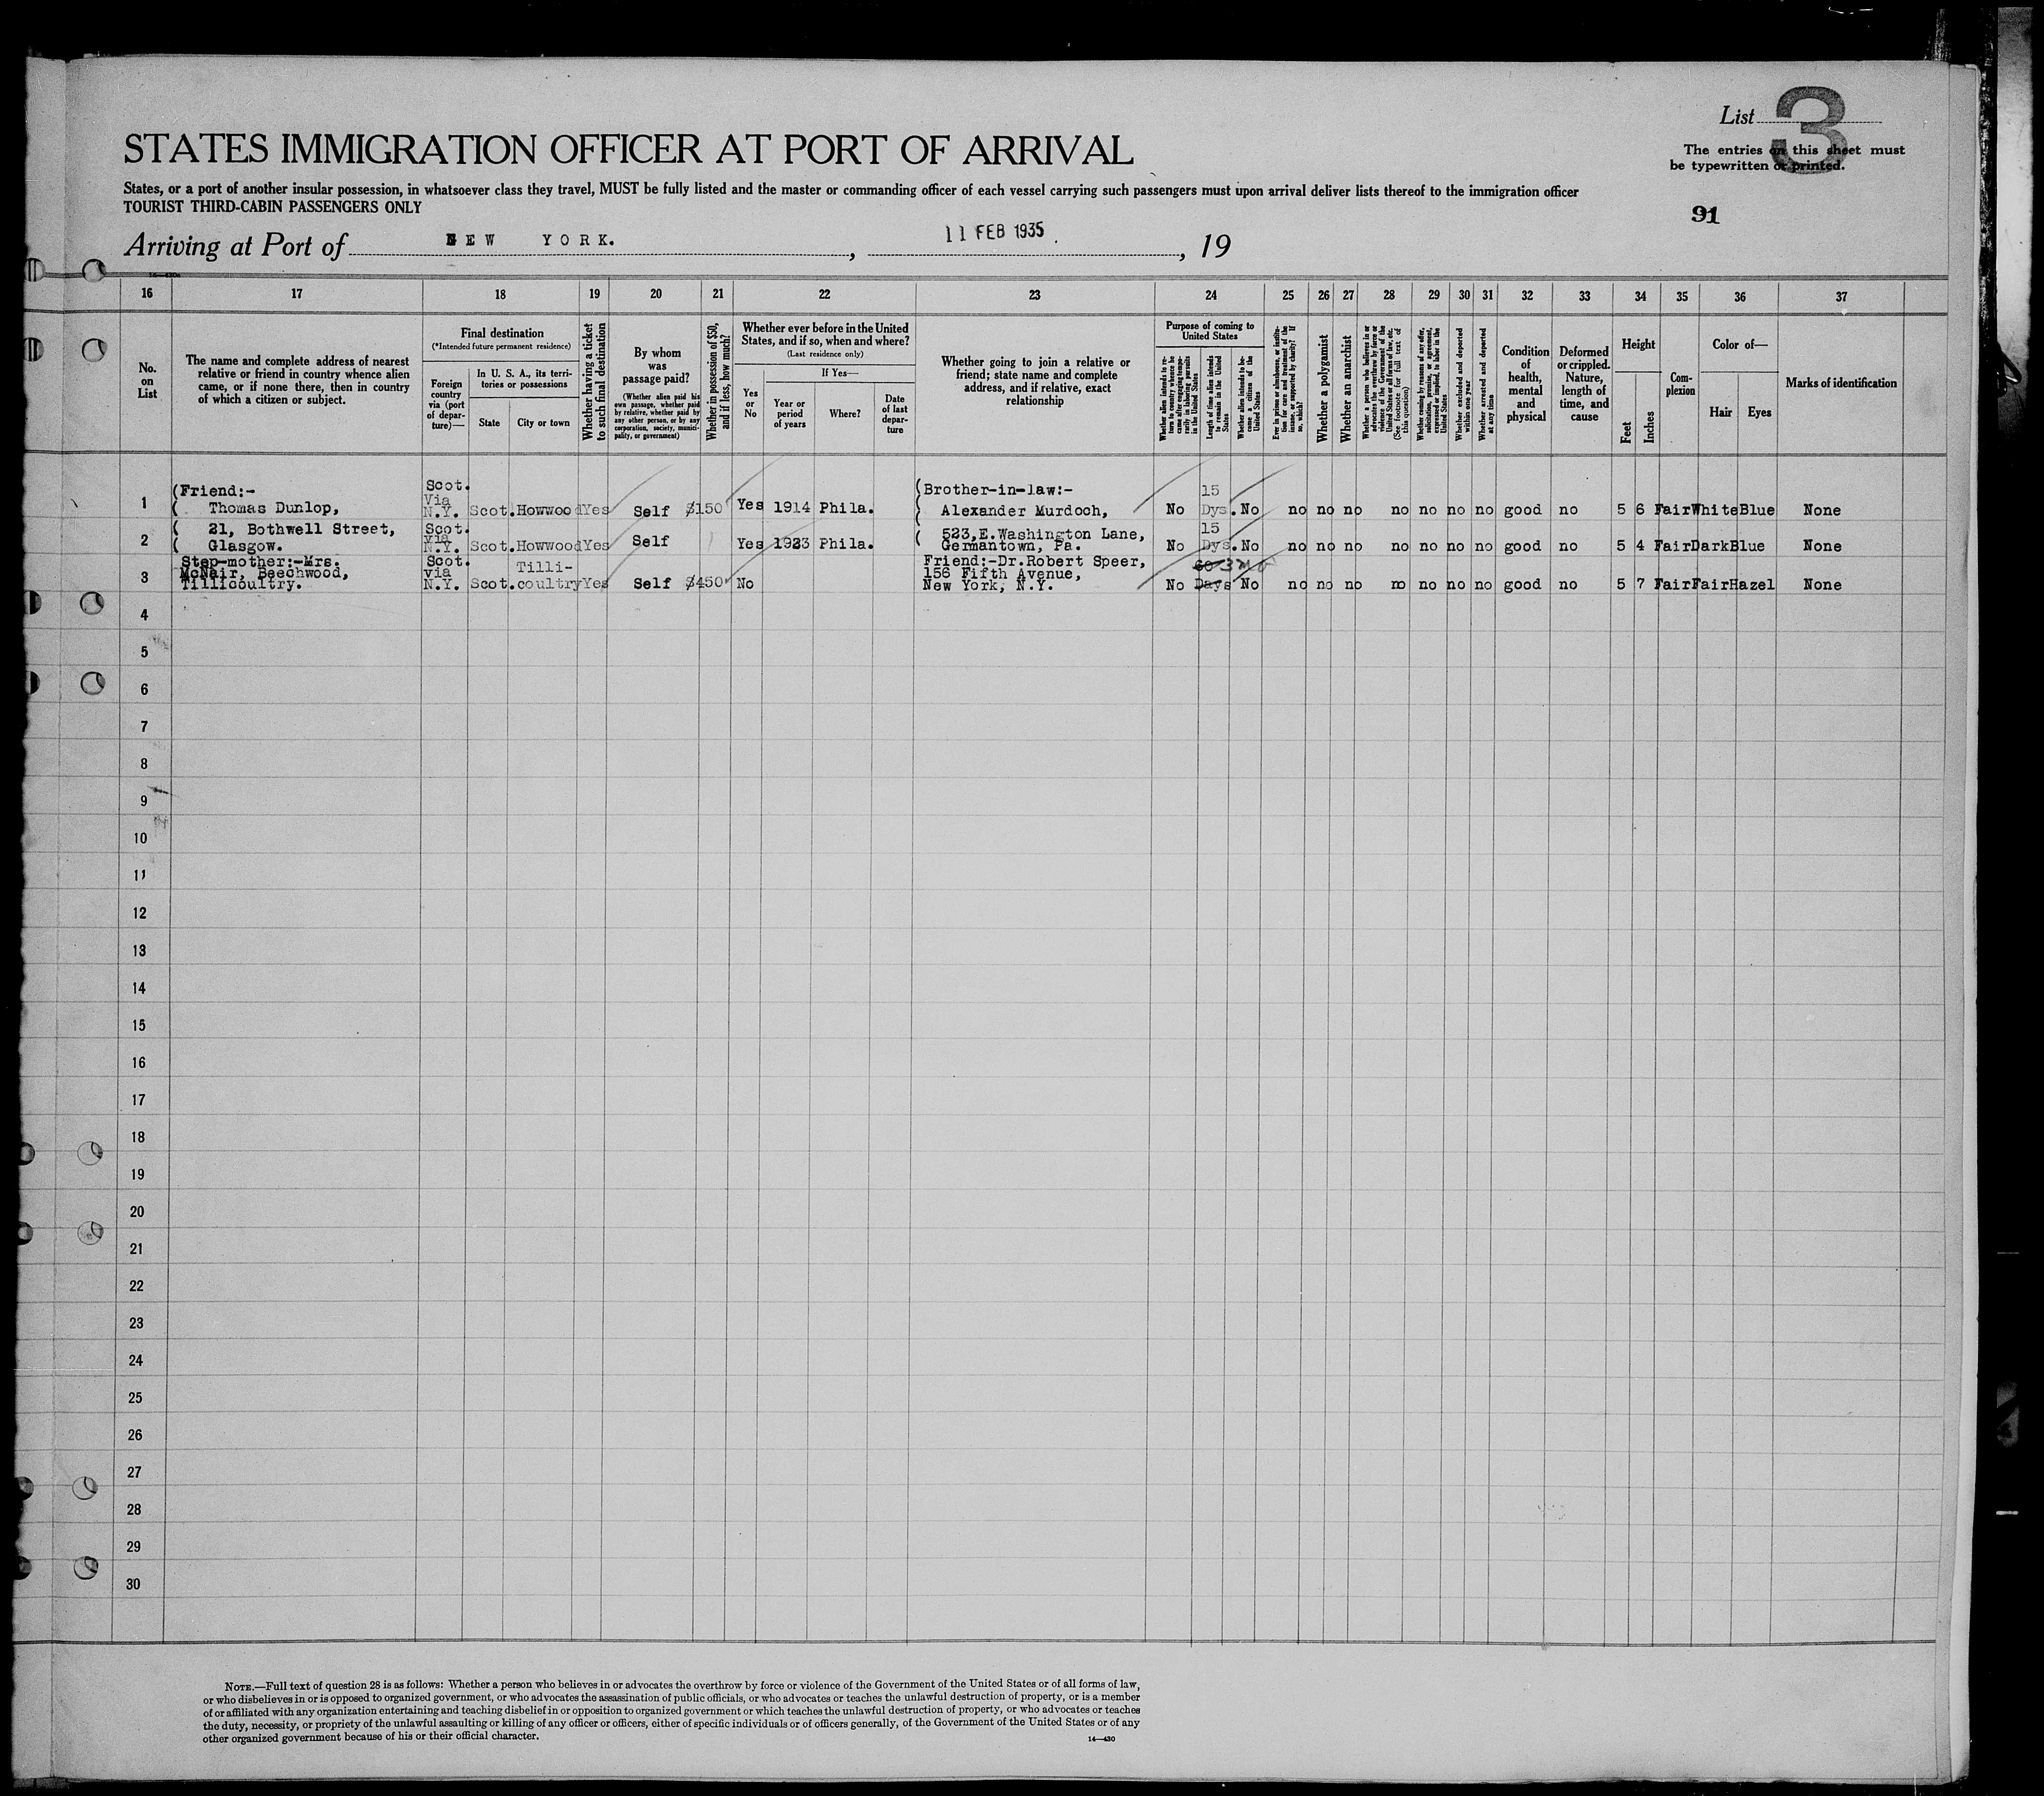 List 3
STATES IMMIGRATION OFFICER AT PORT OF ARRIVAL
The entries on this sheet must
be typewritten or printed.
States, or a port of another insular possession, in whatsoever class they travel, MUST be fully listed and the master or commanding officer of each vessel carrying such passengers must upon arrival deliver lists thereof to the immigration officer
TOURIST THIRD-CABIN PASSENGERS ONLY
91
Arriving at Port of NEW YORK. , 11 FEB 1935 , 19
16 17 18 19 20 21 22 23 24 25 26 27 28 29 30 31 32 33 34 35 36 37
No. on List
The name and complete address of nearest relative or friend in country whence alien came, or if none there, then in country of which a citizen or subject.
Final destination
(*Intended future permanent residence)
Foreign country via (port of departure)—
In U. S. A., its territories or possessions
State
City or town
Whether having a ticket to such final destination
By whom was passage paid?
(Whether alien paid his own passage, whether paid by relative, whether paid by any other person, or by any corporation, society, municipality, or government)
Whether in possession of $50, and if less, how much?
Whether ever before in the United States, and if so, when and where?
(Last residence only)
Yes or No
If Yes—
Year or period of years
Where?
Date of last departure
Whether going to join a relative or friend; state name and complete address, and if relative, exact relationship
Purpose of coming to United States
Whether alien intends to return to country whence he came after engaging temporarily in laboring pursuits in the United States
Length of time alien intends to remain in the United States
Whether alien intends to become a citizen of the United States
Ever in prison or almshouse, or institution for care and treatment of the insane, or supported by charity? If so, which?
Whether a polygamist
Whether an anarchist
Whether a person who believes in or advocates the overthrow by force or violence of the Government of the United States or all forms of law, etc. (See footnote for full text of this question)
Whether coming by reasons of any offer, solicitation, promise, or agreement, expressed or implied, to labor in the United States
Whether excluded and deported within one year
Whether arrested and deported at any time
Condition of health, mental and physical
Deformed or crippled. Nature, length of time, and cause
Height
Feet
Inches
Complexion
Color of—
Hair
Eyes
Marks of identification
1 (Friend:- Thomas Dunlop, Scot. Via N.Y. Scot. Howwood Yes Self $150 Yes 1914 Phila. (Brother-in-law:- Alexander Murdoch, No 15 Dys. No no no no no no no no good no 5 6 Fair White Blue None
2 ( 21, Bothwell Street, Glasgow. Scot. via N.Y. Scot. Howwood Yes Self Yes 1923 Phila. ( 523,E.Washington Lane, Germantown, Pa. No 15 Dys. No no no no no no no no good no 5 4 Fair Dark Blue None
3 Step-mother:-Mrs. McNair, Beechwood, Tillicoultry. Scot. via N.Y. Scot. Tilli-coultry Yes Self $450 No Friend:-Dr.Robert Speer, 156 Fifth Avenue, New York, N.Y. No 60 3 mo Days No no no no no no no no good no 5 7 Fair Fair Hazel None
4
5
6
7
8
9
10
11
12
13
14
15
16
17
18
19
20
21
22
23
24
25
26
27
28
29
30
NOTE.—Full text of question 28 is as follows: Whether a person who believes in or advocates the overthrow by force or violence of the Government of the United States or of all forms of law,
or who disbelieves in or is opposed to organized government, or who advocates the assassination of public officials, or who advocates or teaches the unlawful destruction of property, or is a member
of or affiliated with any organization entertaining and teaching disbelief in or opposition to organized government or which teaches the unlawful destruction of property, or who advocates or teaches
the duty, necessity, or propriety of the unlawful assaulting or killing of any officer or officers, either of specific individuals or of officers generally, of the Government of the United States or of any
other organized government because of his or their official character.
14—430